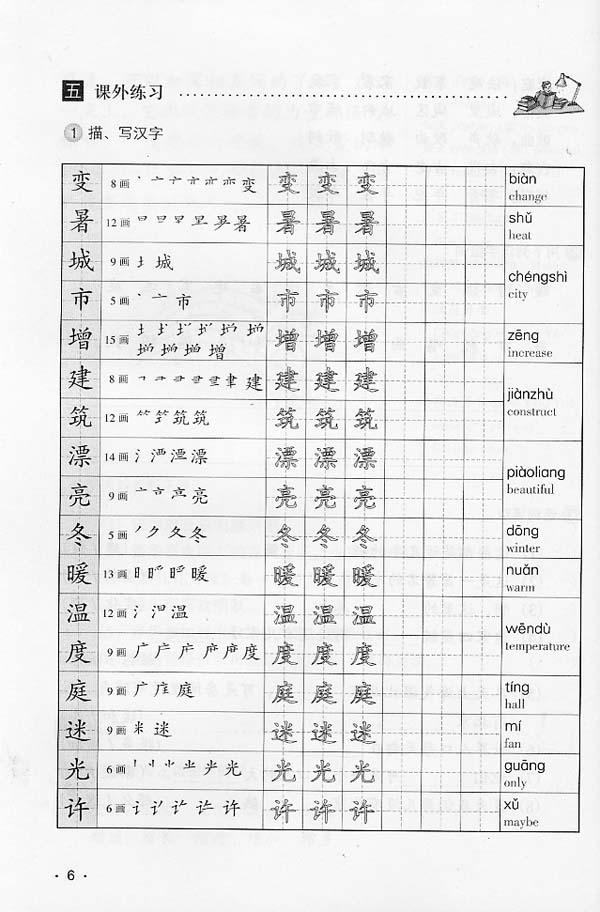 五 课外练习
1 描、写汉字
变 8画 变 变 变 变 biàn change
暑 12画 暑 暑 暑 暑 shǔ heat
城 9画 城 城 城 城 chéngshì city
市 5画 市 市 市 市
增 15画 增 增 增 增 zēng increase
建 8画 建 建 建 建 jiànzhù construct
筑 12画 筑 筑 筑 筑 筑
漂 14画 漂 漂 漂 漂 piàoliang beautiful
亮 9画 亮 亮 亮 亮
冬 5画 夂 冬 冬 冬 冬 dōng winter
暖 13画 暖 暖 暖 暖 nuǎn warm
温 12画 温 温 温 温 wēndù temperature
度 9画 广 度 度 度 度
庭 9画 广 庭 庭 庭 庭 tíng hall
迷 9画 米 迷 迷 迷 迷 mí fan
光 6画 光 光 光 光 guāng only
许 6画 许 许 许 许 xǔ maybe
· 6 ·